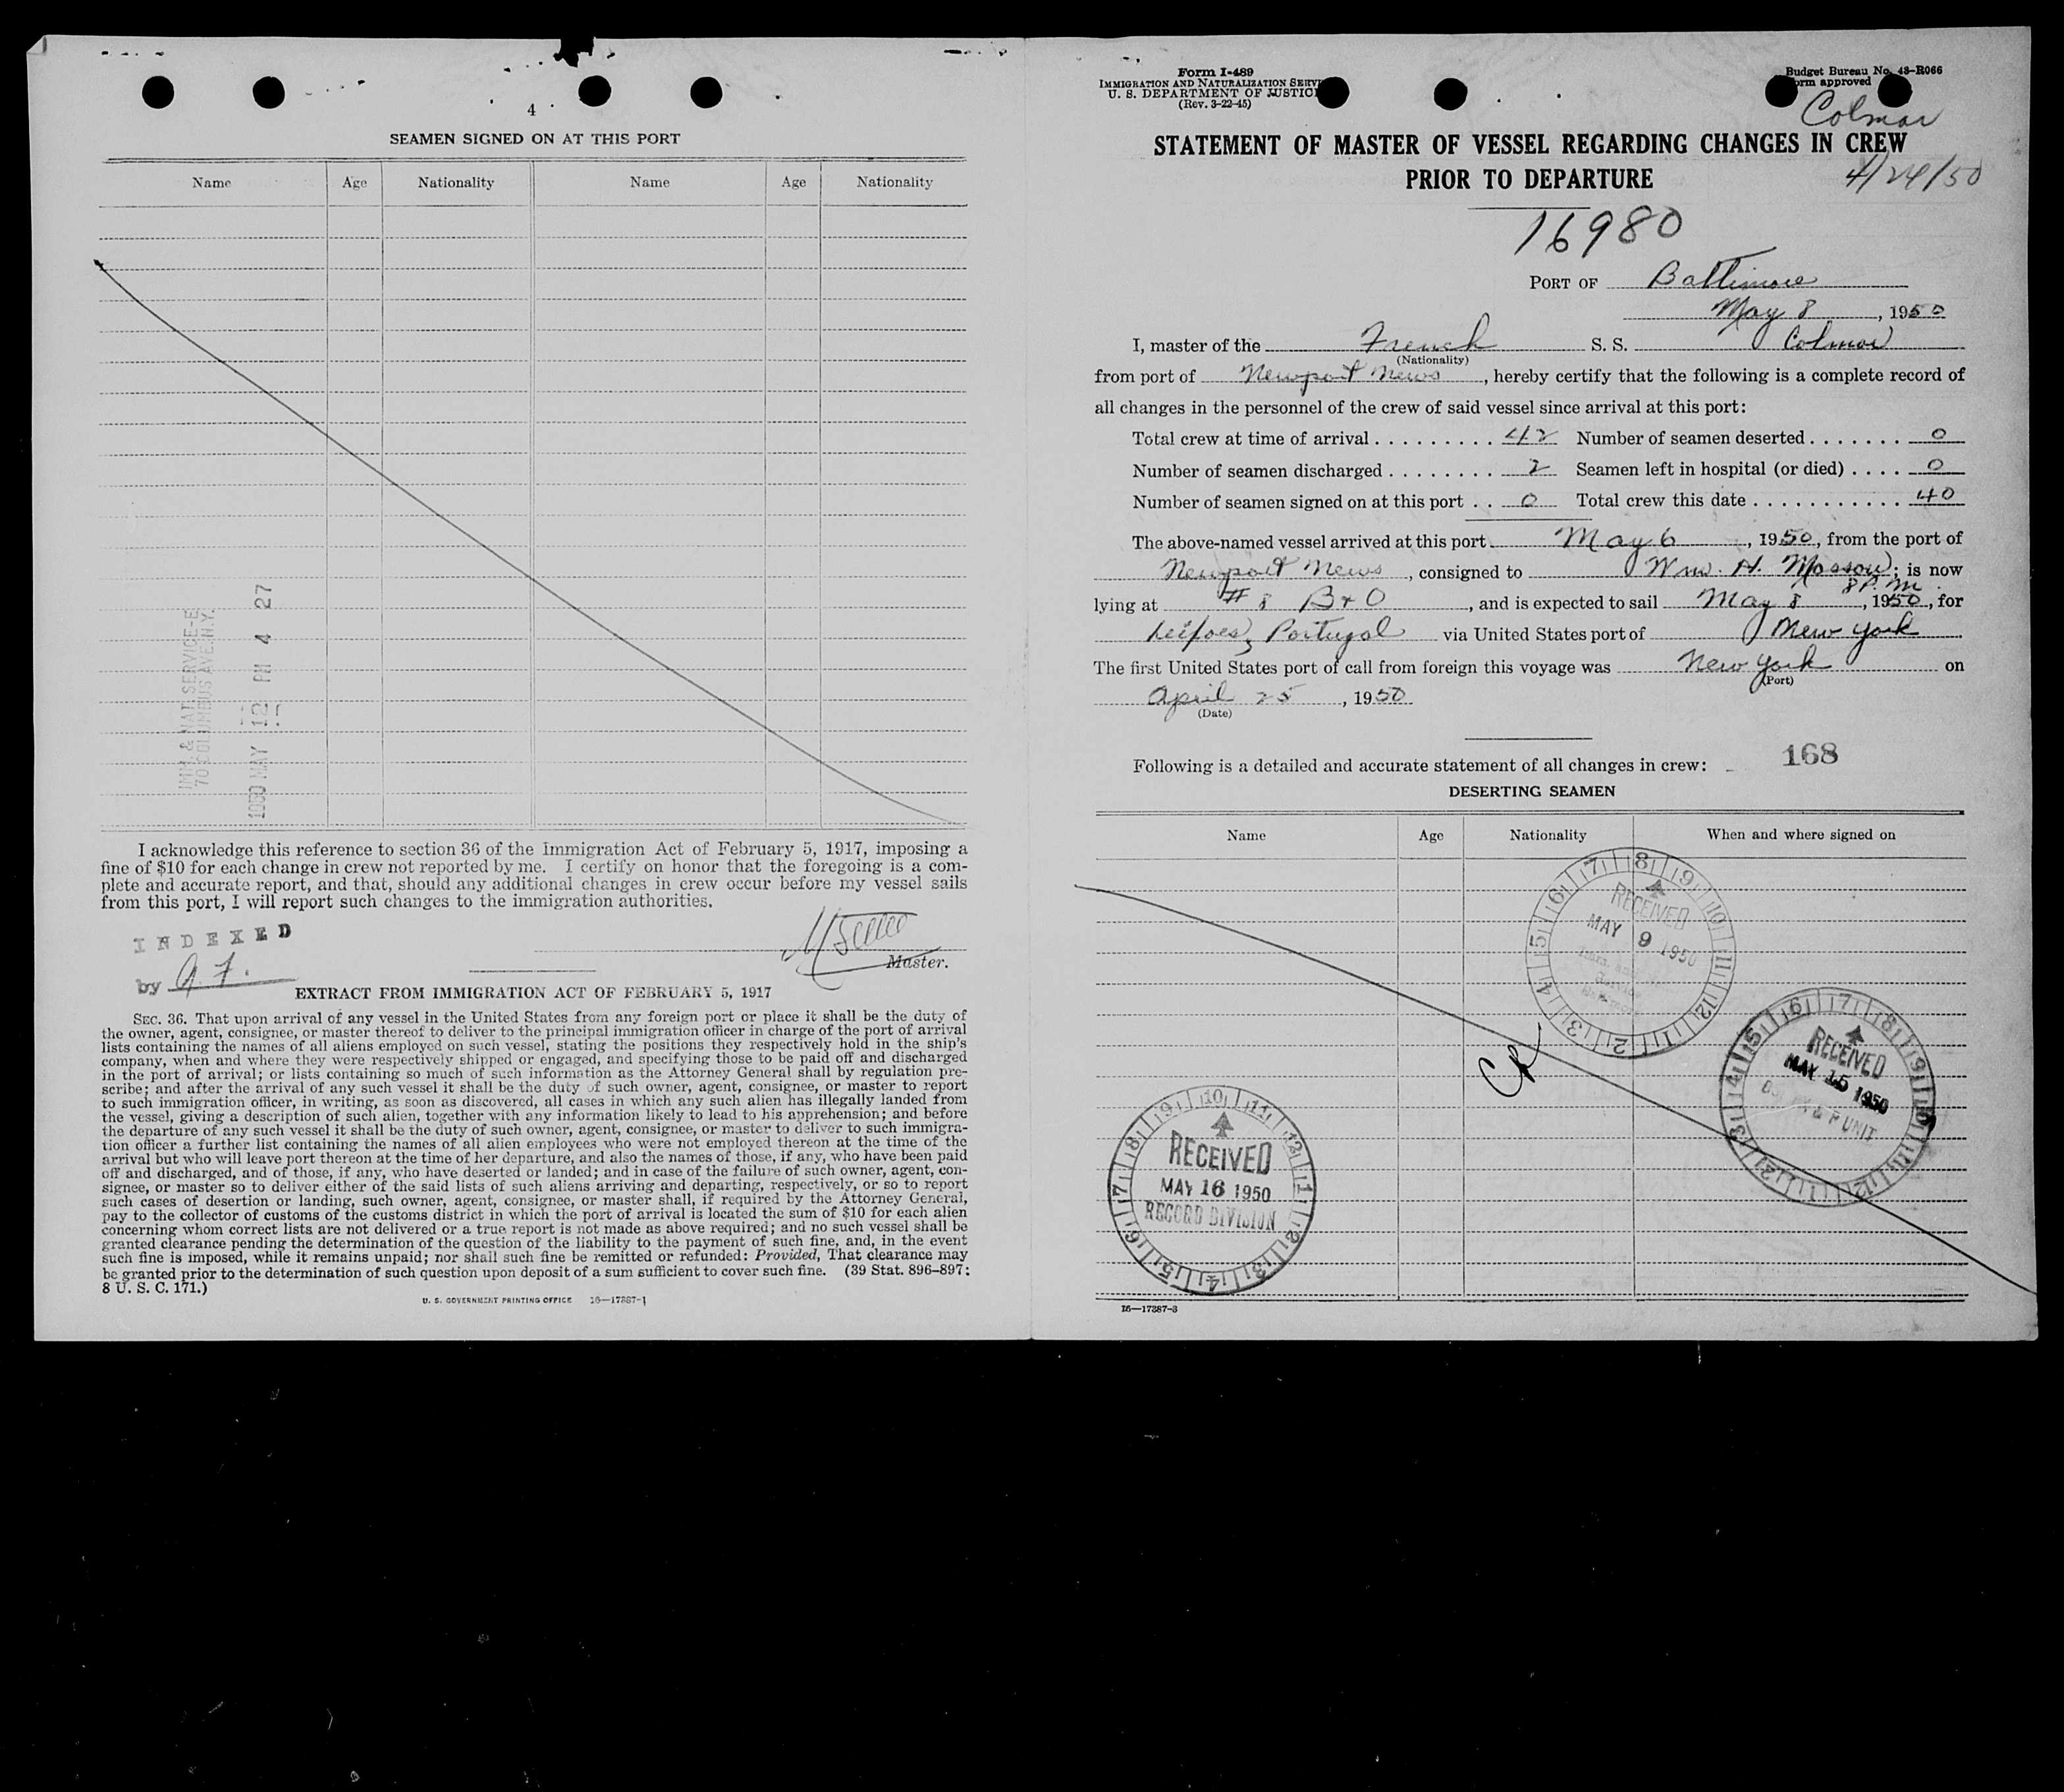 4
SEAMEN SIGNED ON AT THIS PORT
Name Age Nationality Name Age Nationality
IMM & NAT SERVICE-E
70 COLUMBUS AVE. N.Y.
1950 MAY 12 PM 4 27
I acknowledge this reference to section 36 of the Immigration Act of February 5, 1917, imposing a
fine of $10 for each change in crew not reported by me. I certify on honor that the foregoing is a com-
plete and accurate report, and that, should any additional changes in crew occur before my vessel sails
from this port, I will report such changes to the immigration authorities.
INDEXED
by A. F.
Master.
EXTRACT FROM IMMIGRATION ACT OF FEBRUARY 5, 1917
SEC. 36. That upon arrival of any vessel in the United States from any foreign port or place it shall be the duty of
the owner, agent, consignee, or master thereof to deliver to the principal immigration officer in charge of the port of arrival
lists containing the names of all aliens employed on such vessel, stating the positions they respectively hold in the ship's
company, when and where they were respectively shipped or engaged, and specifying those to be paid off and discharged
in the port of arrival; or lists containing so much of such information as the Attorney General shall by regulation pre-
scribe; and after the arrival of any such vessel it shall be the duty of such owner, agent, consignee, or master to report
to such immigration officer, in writing, as soon as discovered, all cases in which any such alien has illegally landed from
the vessel, giving a description of such alien, together with any information likely to lead to his apprehension; and before
the departure of any such vessel it shall be the duty of such owner, agent, consignee, or master to deliver to such immigra-
tion officer a further list containing the names of all alien employees who were not employed thereon at the time of the
arrival but who will leave port thereon at the time of her departure, and also the names of those, if any, who have been paid
off and discharged, and of those, if any, who have deserted or landed; and in case of the failure of such owner, agent, con-
signee, or master so to deliver either of the said lists of such aliens arriving and departing, respectively, or so to report
such cases of desertion or landing, such owner, agent, consignee, or master shall, if required by the Attorney General,
pay to the collector of customs of the customs district in which the port of arrival is located the sum of $10 for each alien
concerning whom correct lists are not delivered or a true report is not made as above required; and no such vessel shall be
granted clearance pending the determination of the question of the liability to the payment of such fine, and, in the event
such fine is imposed, while it remains unpaid; nor shall such fine be remitted or refunded: Provided, That clearance may
be granted prior to the determination of such question upon deposit of a sum sufficient to cover such fine. (39 Stat. 896-897;
8 U. S. C. 171.)
U. S. GOVERNMENT PRINTING OFFICE 16—17387-1
Form I-489
IMMIGRATION AND NATURALIZATION SERVI
U. S. DEPARTMENT OF JUSTIC
(Rev. 3-22-45)
Budget Bureau No. 43-R066
orm approved
Colmar
STATEMENT OF MASTER OF VESSEL REGARDING CHANGES IN CREW
PRIOR TO DEPARTURE
4/24/50
16980
PORT OF Baltimore
May 8, 1950
I, master of the French S. S. Colmar
(Nationality)
from port of Newport News, hereby certify that the following is a complete record of
all changes in the personnel of the crew of said vessel since arrival at this port:
Total crew at time of arrival . . . . . . . . . 42 Number of seamen deserted . . . . . . . 0
Number of seamen discharged . . . . . . . . 2 Seamen left in hospital (or died) . . . . 0
Number of seamen signed on at this port . . 0 Total crew this date . . . . . . . . . . . . 40
The above-named vessel arrived at this port May 6, 1950, from the port of
Newport News, consigned to Wm. H. Masson; is now
8 P. M.
lying at # 8 B & O, and is expected to sail May 8, 1950, for
Leixoes, Portugal via United States port of New York
The first United States port of call from foreign this voyage was New York on
(Port)
April 25, 1950
(Date)
168
Following is a detailed and accurate statement of all changes in crew:
DESERTING SEAMEN
Name Age Nationality When and where signed on
RECEIVED
MAY 9 1950
RECEIVED
MAY 15 1950
& P UNIT
RECEIVED
MAY 16 1950
RECORD DIVISION
16—17387-3